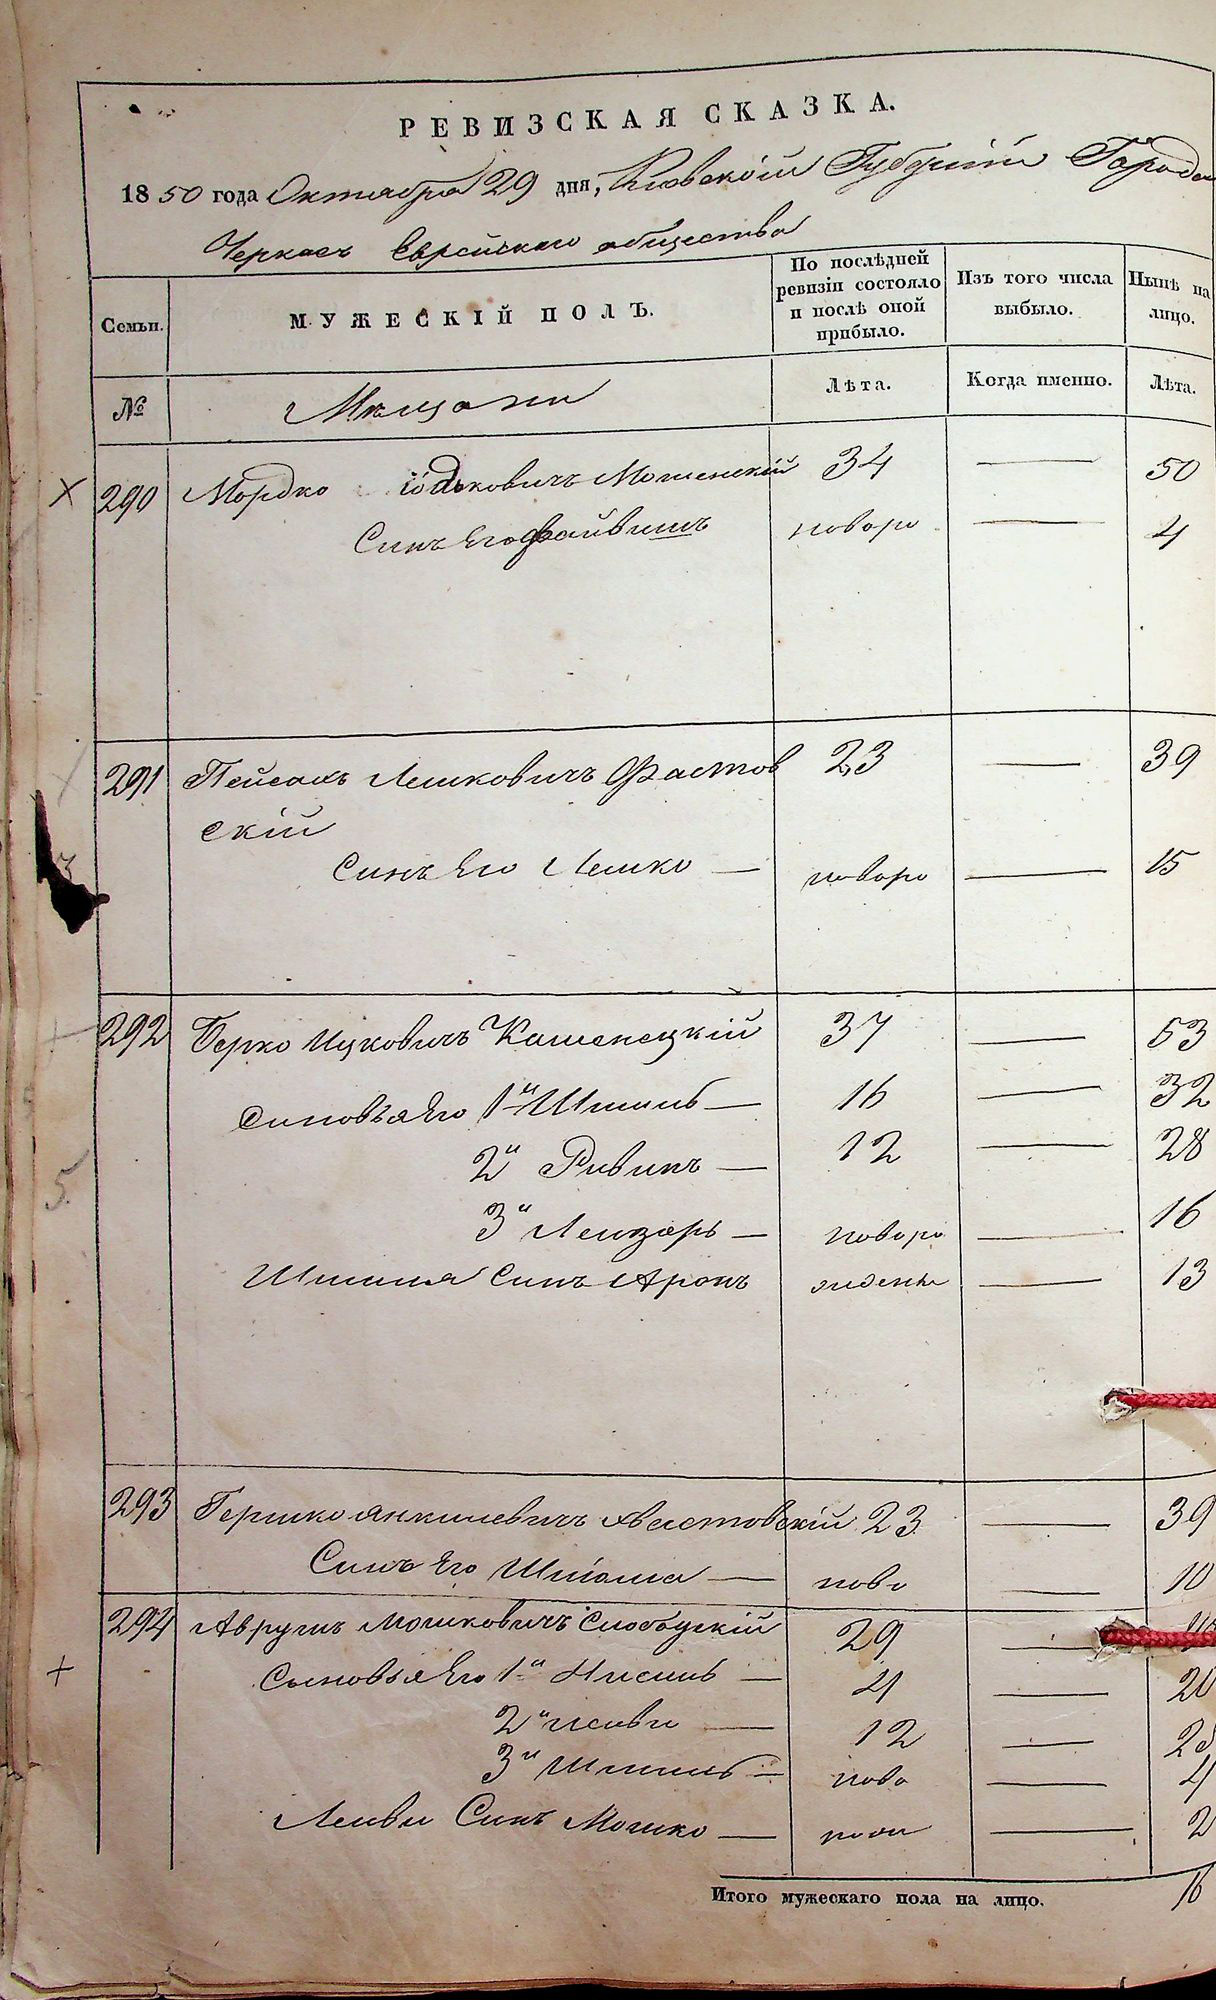 РЕВИЗСКАЯ СКАЗКА.
1850 года Октября 29 дня, Киевской Губерніи Города
Черкасъ Еврейскаго общества
Семьи. МУЖЕСКІЙ ПОЛЪ. По послѣдней ревизіи состояло и послѣ оной прибыло. Изъ того числа выбыло. Нынѣ на лицо.
№ Мещане Лѣта. Когда именно. Лѣта.
290 Мордко Іоськовичъ Мошенскій 34 — 50
Синъ Его Файвишъ новоро — 4
291 Пейсахъ Лешковичъ Фастов 23 — 39
скій
Синъ Его Лешко — новоро — 15
292 Берко Ицковичъ Каменецкій 37 — 53
Синовья Его 1й Шмиль — 16 — 32
2й Ривинъ — 12 — 28
3й Лейзаръ — новоро — 16
Шмиля Синъ Аронъ — 13
5.
293 Гершко Янкилевичъ Хвастовскій 23 — 39
Синъ Его — ново — 10
294 Аврумъ Мошковичъ Слободскій 29 —
Сыновья Его 1й Нисинъ — 4 — 20
2й — 12 —
3й Шмиль — ново — 4
Лейви Синъ Мошко — — 2
Итого мужескаго пола на лицо. 16